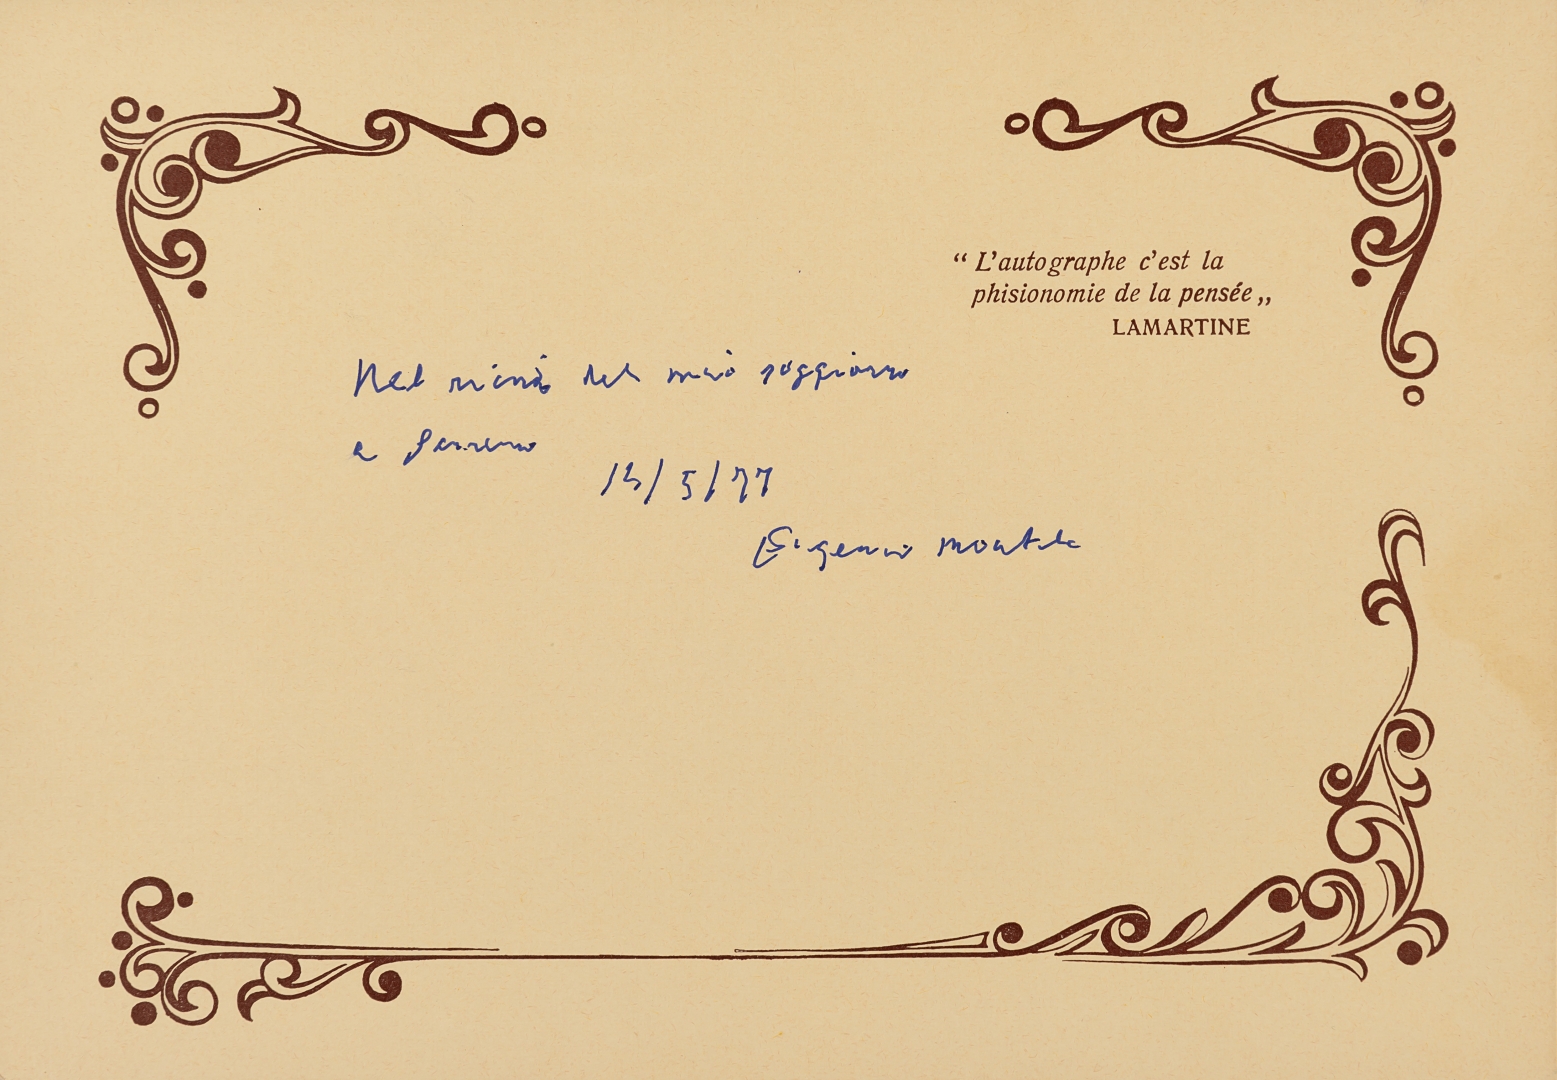 “ L'autographe c'est la
phisionomie de la pensée „
LAMARTINE
Nel del mio soggiorno
a
Eugenio Montale